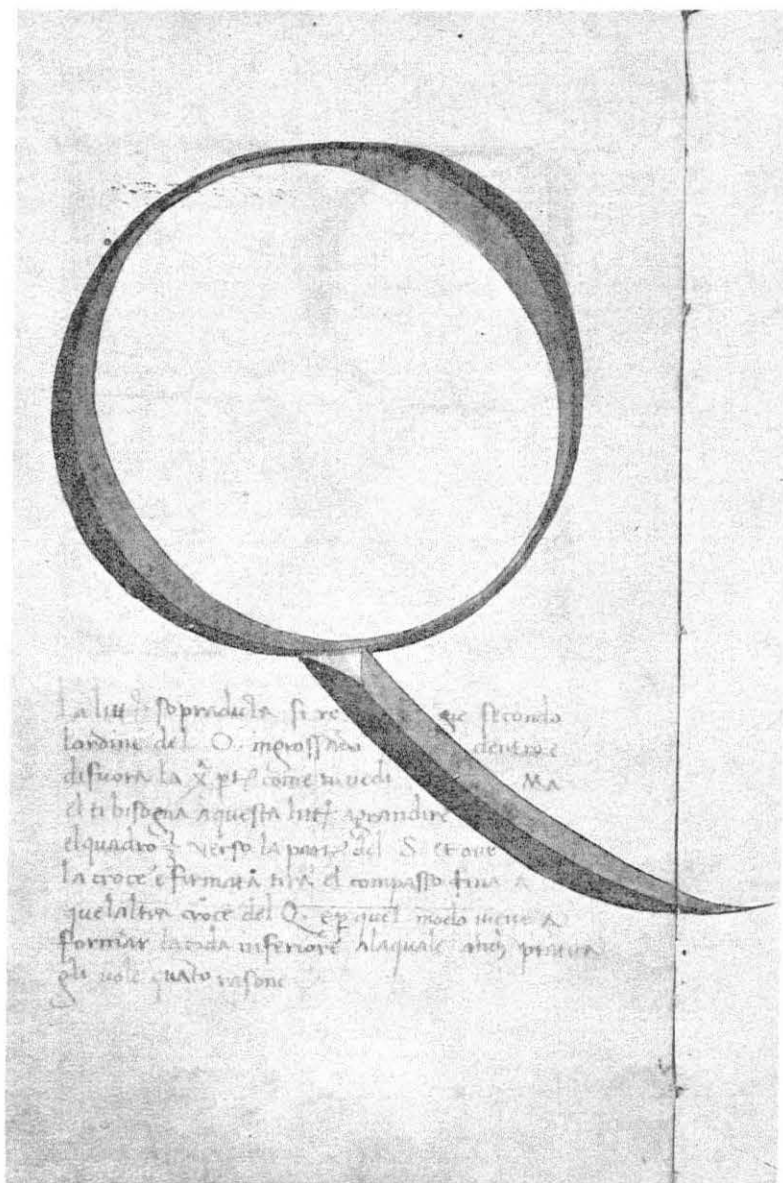 La litt. sopradicta si re ge secondo
lordine del O. ingrossato dentro e
disfuora la x pt. come tu vedi MA
el ti bisogna aquesta litt. aprandire
el quadro verso la parte del S et ove
la croce é firmata tira el compasso fina a
quelaltra croce del Q. e p quel modo viene a
formar la coda inferiore alaquale pratica
gli vole quato rasone